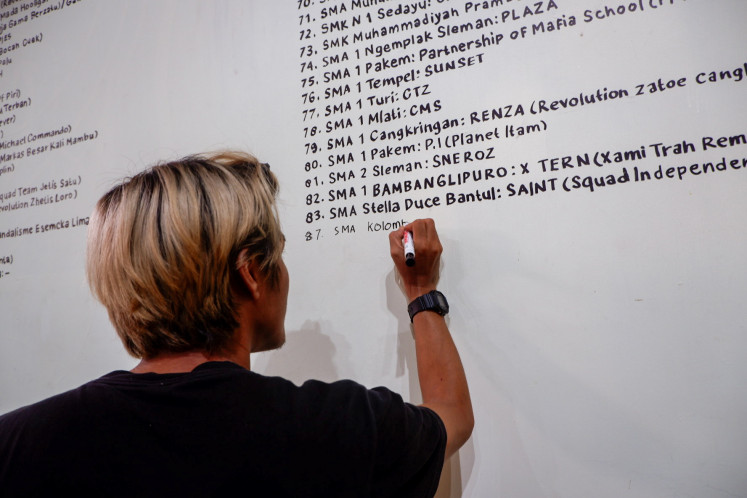 Mada Hooligan
a Gama Berzatu)/Ga
Bocah Cuak)
Piri)
Terban)
ever)
Michael Commando)
Markas Besar Kali Mambu)
plin)
quad Team Jetis Satu)
evolution Zhetis Loro)
ndalisme Esemcka Lima
nta)
70.
71. SMA Muha
72. SMK N 1 Sedayu:
73. SMK Muhammadiyah Pramb
74. SMA 1 Ngemplak Sleman: PLAZA
75. SMA 1 Pakem: Partnership of Mafia School
76. SMA 1 Tempel: SUNSET
77. SMA 1 Turi: GTZ
78. SMA 1 Mlati: CMS
79. SMA 1 Cangkringan: RENZA (Revolution Zatoe Cangk
80. SMA 1 Pakem: P.I (Planet Itam)
81. SMA 2 Sleman: SNEROZ
82. SMA 1 BAMBANGLIPURO: X TERN (Xami Trah Rem
83. SMA Stella Duce Bantul: SAINT (Squad Independen
87. SMA Kolomb